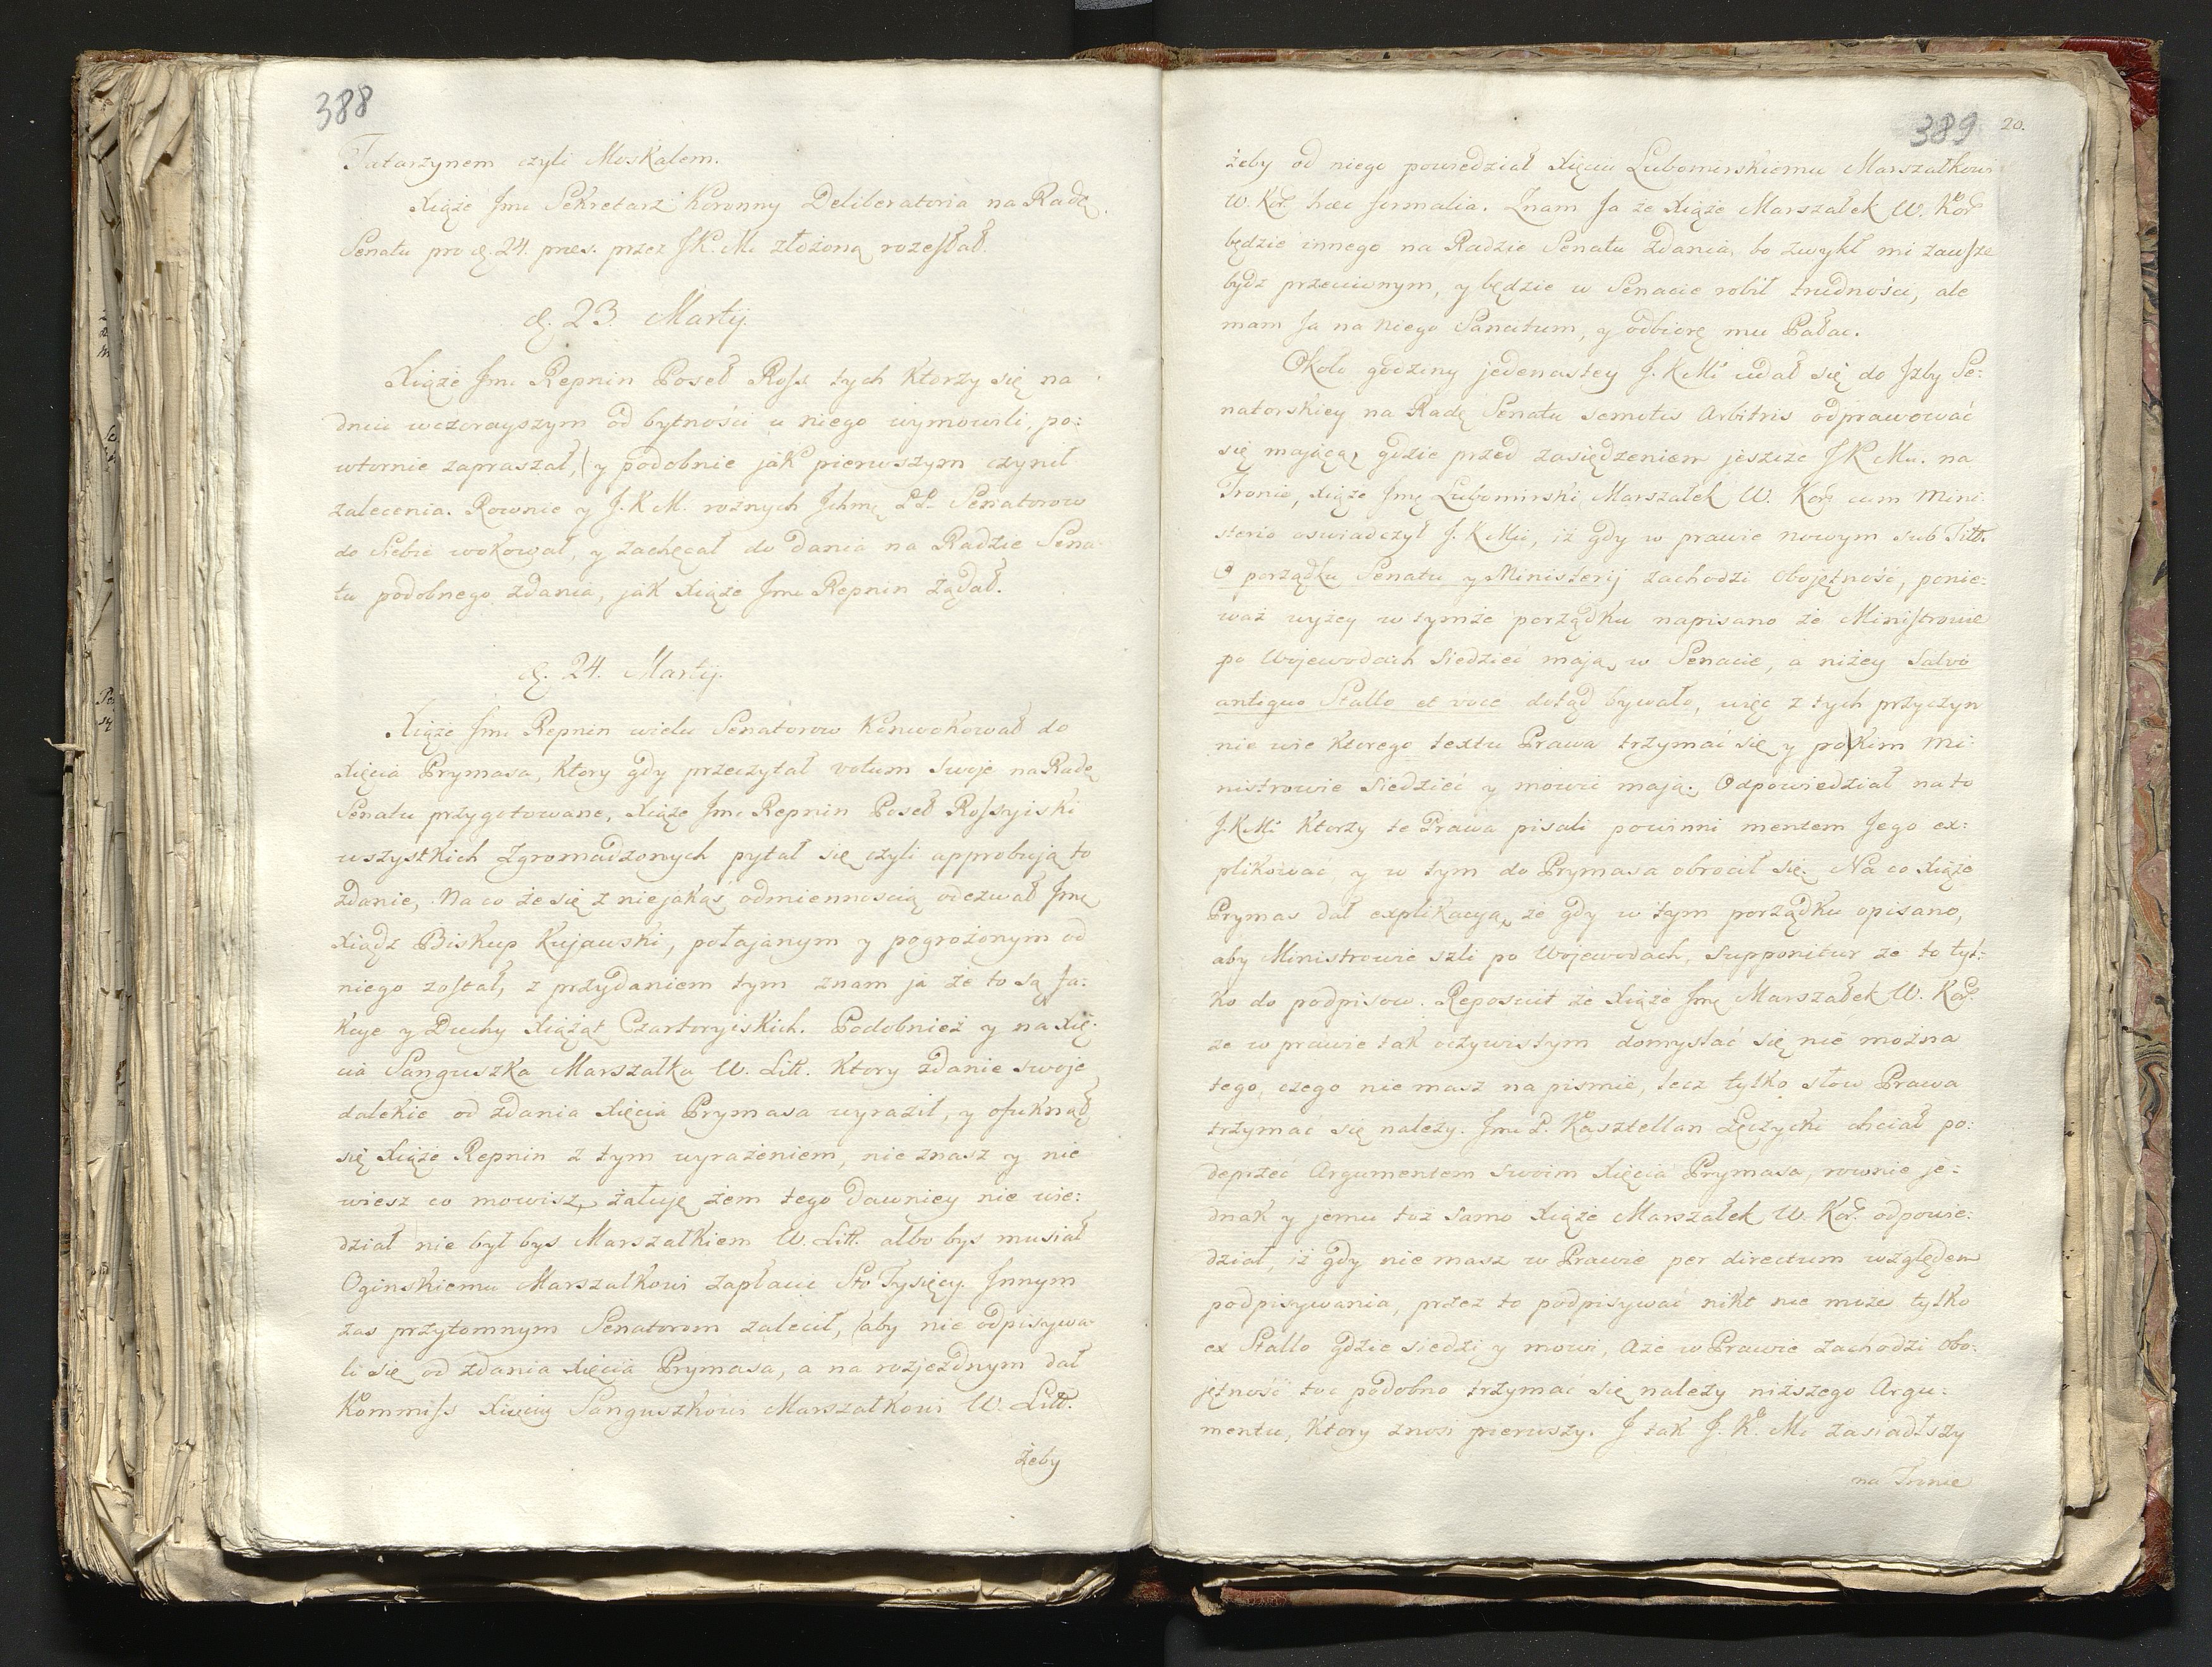 388
Tatarzynem czyli Moskalem.
Xiąże Jmć Sekretarz Koronny Deliberatoria na Radę
Senatu pro d. 24. præs. przez JK. M. złożoną rozesłał.
d. 23. Martij.
Xiąże Jmć Repnin Poseł Ross. tych ktorzy się na
dniu wczorayszym od bytności u niego wymowili, po:
wtornie zapraszał, y podobnie jak pierwszym czynił
zalecenia. Rownie y J.K.M. rożnych Jchmć PP. Senatorow
do Siebie wokował, y zachęcał do dania na Radzie Sena-
tu podobnego zdania, jak Xiąże Jmć Repnin żądał.
d. 24. Martij.
Xiąże Jmć Repnin wielu Senatorow konwokował do
Xięcia Prymasa, ktory gdy przeczytał votum swoje na Radę
Senatu przygotowane, Xiąże Jmć Repnin Poseł Rossyiski
wszystkich zgromadzonych pytał się czyli approbują to
zdanie, Na co że się z niejakąś odmiennoscią odezwał Jmć
Xiądz Biskup Kujawski, połajanym y pogrożonym od
niego został, z przydaniem tym znam ja że to są Fa:
kcye y Duchy Xiążąt Czartoryiskich. Podobnież y na Xię:
cia Sanguszka Marszałka W. Litt. ktory zdanie swoje
dalekie od zdania Xięcia Prymasa wyraził, y ofuknął
się Xiąże Repnin z tym wyrażeniem, nie znasz y nie
wiesz co mowisz, żałuję żem tego dawniey nie wie:
dział nie był bys Marszałkiem W. Litt. albo bys musiał
Oginskiemu Marszałkowi zapłacic Sto Tysięcy. Jnnym
zas przytomnym Senatorom zalecił, aby nie odpisywa-
li się od zdania Xięcia Prymasa, a na rozjezdnym dał
Kommiss Xięciu Sanguszkowi Marszałkowi W. Litt.
żeby
389 20.
żeby od niego powiedział Xięciu Lubomirskiemu Marszałkowi
W. Kor. hæc formalia. Znam Ja że Xiąże Marszałek W. Kor
będzie innego na Radzie Senatu zdania, bo zwykł mi zawsze
bydź przeciwnym, y będzie w Senacie robił trudności, ale
mam Ja na niego Sancitum, y odbiorę mu Pałac.
Około godziny jedenastey J. K Mć udał się do Jzby Se:
natorskiey na Radę Senatu semotis Arbitris odprawować
się mającą, gdzie przed zasiędzeniem jeszcze JK Mci. na
Tronie, Xiąże Jmć Lubomirski Marszałek W. Kor. cum Mini
sterio oswiadczył J. K Mci, iż gdy w prawie nowym sub Titt.
O porządku Senatu y Ministerij zachodzi obojętność, ponie:
waż wyżey w tymże porządku napisano że Ministrowie
po Wojewodach Siedzieć mają w Senacie, a niżey Salvo
antiquo Stallo et voce dotąd bywało, więc z tych przyczyn
nie wie ktorego textu Prawa trzymać się y po kim Mi:
nistrowie Siedzieć y mowić mają. Odpowiedział na to
J.K.Mć Ktorzy te Prawa pisali powinni mentem Jego ex:
plikować, y w tym do Prymasa obrocił się. Na co Xiąże
Prymas dał explikacyą, że gdy w tym porządku opisano,
aby Ministrowie szli po Wojewodach, supponitur że to tyl:
ko do podpisow. Reposuit że Xiąże Jmć Marszałek W. Kor.
ze w prawie tak oczywistym domyslać się nie można
tego, czego nie masz na pismie, lecz tylko słow Prawa
trzymac się należy. Jmć P. Kasztellan Łęczycki chciał po:
deprzeć Argumentem swoim Xięcia Prymasa, rownie je:
dnak y jemu toż samo Xiąże Marszałek W. Kor. odpowie:
dział, iż gdy nie masz w Prawie per directum względem
podpisywania, przez to podpisywać nikt nie może tylko
ex Stallo gdzie siedzi y mowi, Aże w Prawie zachodzi obo:
jętność toć podobno trzymać się należy niższego Argu:
mentu, ktory znosi pierwszy. J tak J. K. Mć zasiadłszy
na Tronie